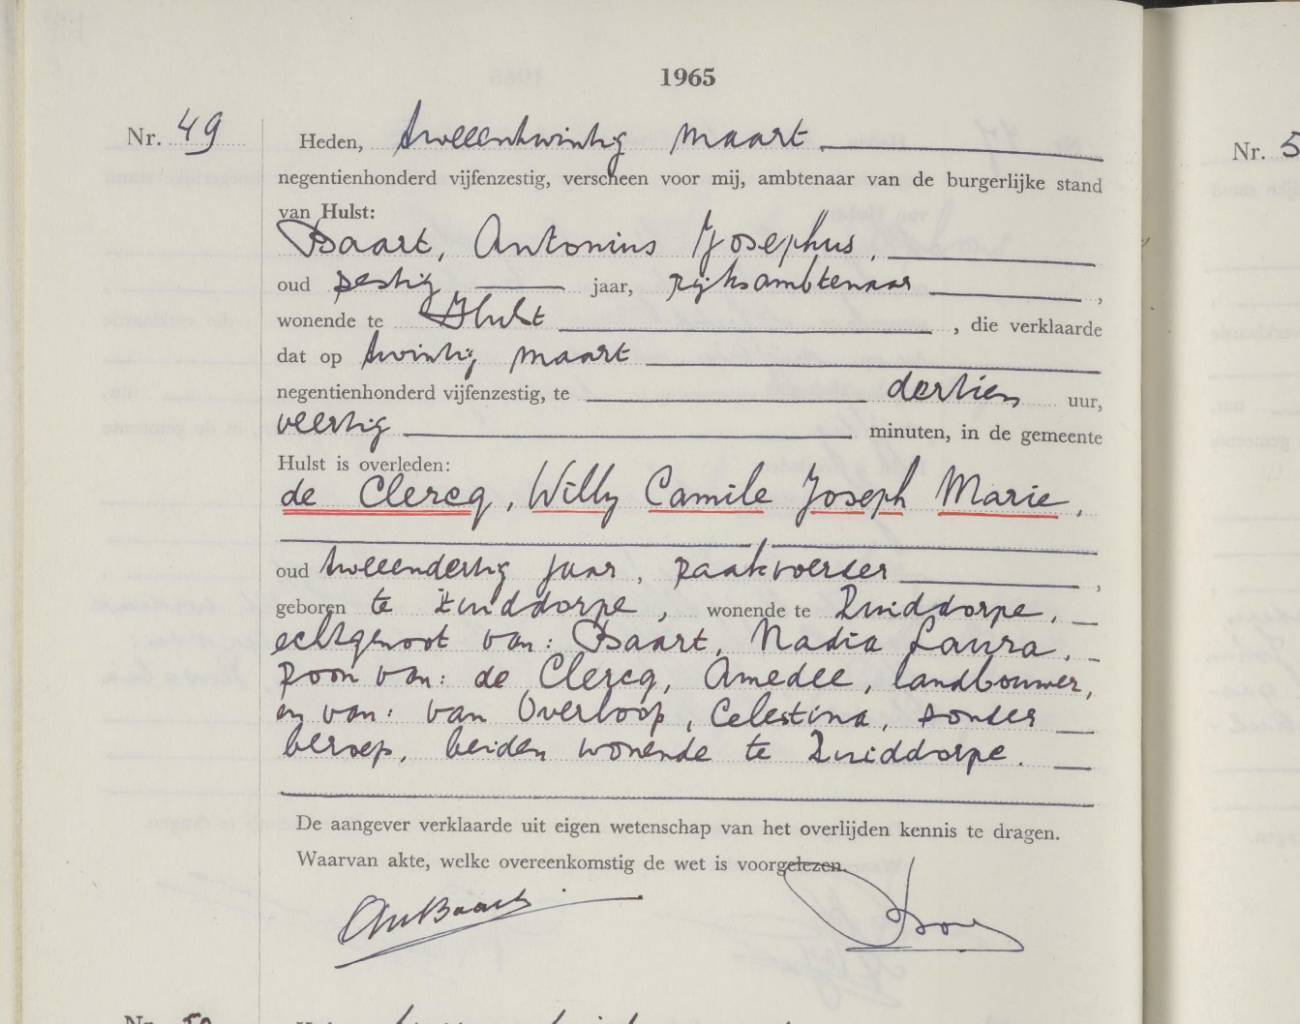 1965
Nr. 49
Heden, tweeentwintig maart
negentienhonderd vijfenzestig, verscheen voor mij, ambtenaar van de burgerlijke stand
van Hulst:
Baart, Antonius Josephus,
oud zestig jaar, rijksambtenaar,
wonende te Hulst, die verklaarde
dat op twintig maart
negentienhonderd vijfenzestig, te dertien uur,
veertig minuten, in de gemeente
Hulst is overleden:
de Clercq, Willy Camile Joseph Marie,
oud tweeendertig jaar, zaakvoerder,
geboren te Zuiddorpe, wonende te Zuiddorpe,
echtgenoot van: Baart, Nadia Laura,
zoon van: de Clercq, Amedee, landbouwer,
en van: van Overloop, Celestina, zonder
beroep, beiden wonende te Zuiddorpe.
De aangever verklaarde uit eigen wetenschap van het overlijden kennis te dragen.
Waarvan akte, welke overeenkomstig de wet is voorgelezen.
Baart
Nr. 50
Nr. 5